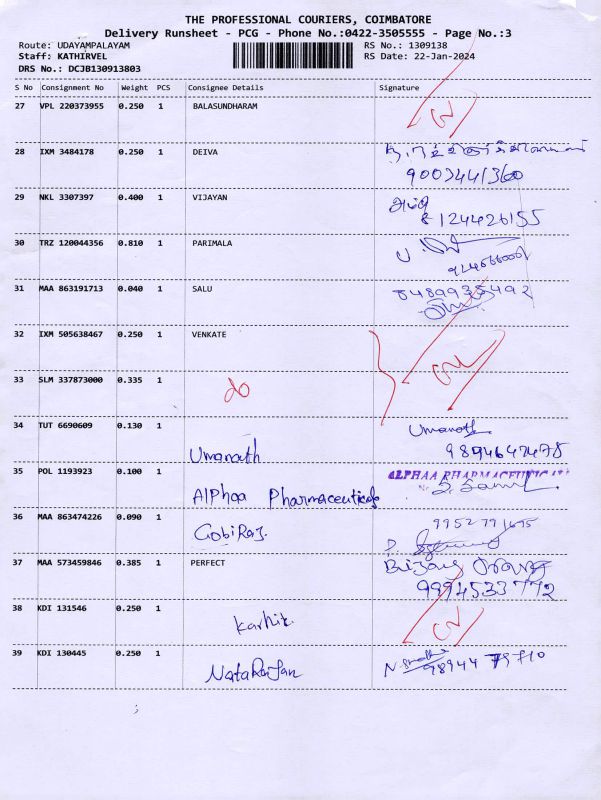 THE PROFESSIONAL COURIERS, COIMBATORE
Delivery Runsheet - PCG - Phone No.:0422-3505555 - Page No.:3
Route: UDAYAMPALAYAM RS No.: 1309138
Staff: KATHIRVEL RS Date: 22-Jan-2024
DRS No.: DCJB130913803
S No Consignment No Weight PCS Consignee Details Signature
27 VPL 220373955 0.250 1 BALASUNDHARAM
28 IXM 3484178 0.250 1 DEIVA
9003441360
29 NKL 3307397 0.400 1 VIJAYAN
8124426155
30 TRZ 120044356 0.810 1 PARIMALA
31 MAA 863191713 0.040 1 SALU 8489935492
32 IXM 505638467 0.250 1 VENKATE
33 SLM 337873000 0.335 1
34 TUT 6690609 0.130 1 Umanath Umanath
9894647478
35 POL 1193923 0.100 1 Alphaa Pharmaceuticals ALPHAA PHARMACEUTICALS
36 MAA 863474226 0.090 1 GobiRaj. 9952791695
37 MAA 573459846 0.385 1 PERFECT
9994533772
38 KDI 131546 0.250 1 Karhik.
39 KDI 130445 0.250 1 NataRajan